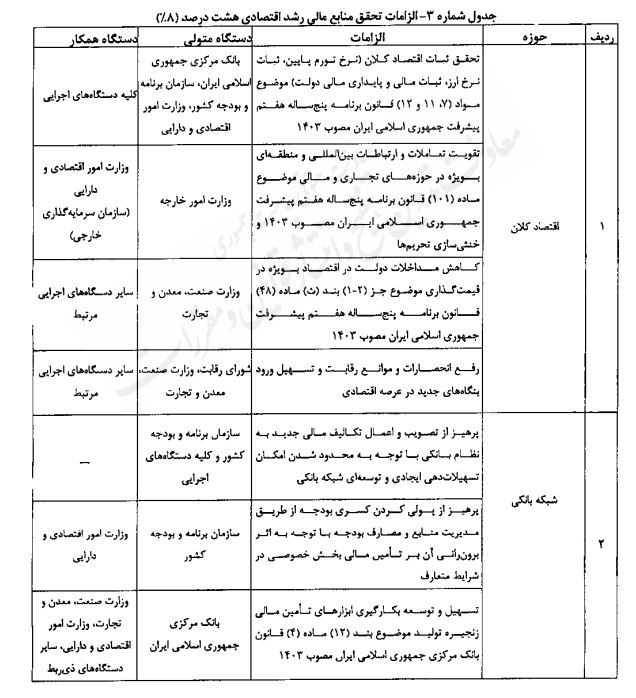 جدول شماره ۳- الزامات تحقق منابع مالی رشد اقتصادی هشت درصد (۸٪)
ردیف
حوزه
الزامات
دستگاه متولی
دستگاه همکار
۱
اقتصاد کلان
تحقق ثبات اقتصاد کلان (نرخ تورم پایین، ثبات
نرخ ارز، ثبات مالی و پایداری مالی دولت) موضوع
مواد (۷، ۱۱ و ۱۲) قانون برنامه پنج‌ساله هفتم
پیشرفت جمهوری اسلامی ایران مصوب ۱۴۰۳
بانک مرکزی جمهوری
اسلامی ایران، سازمان برنامه
و بودجه کشور، وزارت امور
اقتصادی و دارایی
کلیه دستگاه‌های اجرایی
تقویت تعاملات و ارتباطات بین‌المللی و منطقه‌ای
بویژه در حوزه‌های تجاری و مالی موضوع
ماده (۱۰۱) قانون برنامه پنج‌ساله هفتم پیشرفت
جمهوری اسلامی ایران مصوب ۱۴۰۳ و
خنثی‌سازی تحریم‌ها
وزارت امور خارجه
وزارت امور اقتصادی و
دارایی
(سازمان سرمایه‌گذاری
خارجی)
کاهش مداخلات دولت در اقتصاد بویژه در
قیمت‌گذاری موضوع جز (۲-۱) بند (ث) ماده (۴۸)
قانون برنامه پنج‌ساله هفتم پیشرفت
جمهوری اسلامی ایران مصوب ۱۴۰۳
وزارت صنعت، معدن و
تجارت
سایر دستگاه‌های اجرایی
مرتبط
رفع انحصارات و موانع رقابت و تسهیل ورود
بنگاه‌های جدید در عرصه اقتصادی
شورای رقابت، وزارت صنعت،
معدن و تجارت
سایر دستگاه‌های اجرایی
مرتبط
۲
شبکه بانکی
پرهیز از تصویب و اعمال تکالیف مالی جدید به
نظام بانکی با توجه به محدود شدن امکان
تسهیلات‌دهی ایجادی و توسعه‌ای شبکه بانکی
سازمان برنامه و بودجه
کشور و کلیه دستگاه‌های
اجرایی
—
پرهیز از پولی کردن کسری بودجه از طریق
مدیریت منابع و مصارف بودجه با توجه به اثر
برون‌رانی آن بر تأمین مالی بخش خصوصی در
شرایط متعارف
سازمان برنامه و بودجه
کشور
وزارت امور اقتصادی و
دارایی
تسهیل و توسعه بکارگیری ابزارهای تأمین مالی
زنجیره تولید موضوع بند (۱۲) ماده (۴) قانون
بانک مرکزی جمهوری اسلامی ایران مصوب ۱۴۰۳
بانک مرکزی
جمهوری اسلامی ایران
وزارت صنعت، معدن و
تجارت، وزارت امور
اقتصادی و دارایی، سایر
دستگاه‌های ذی‌ربط